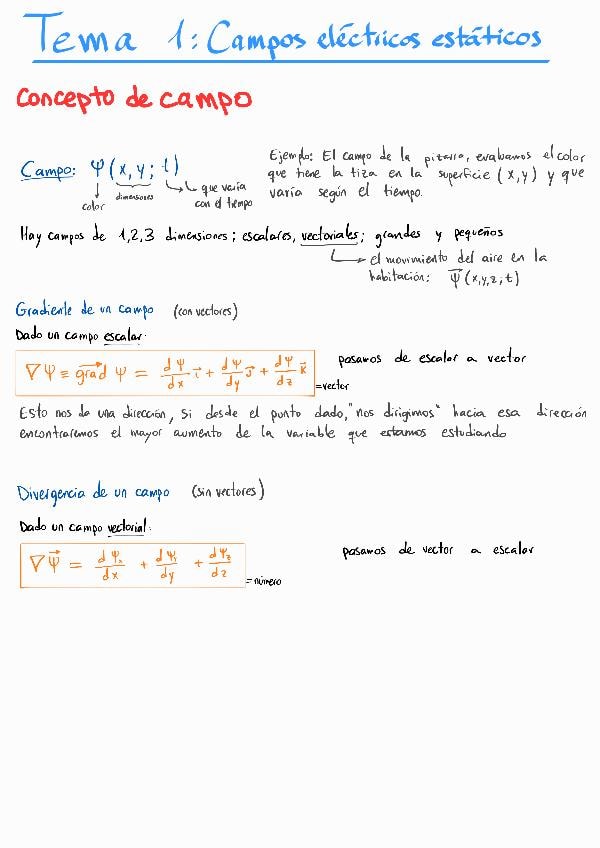 Tema 1: Campos eléctricos estáticos
Concepto de campo
Campo: Ψ(x, y; t)
color
dimensiones
que varía
con el tiempo
Ejemplo: El campo de la pizarra, evaluamos el color
que tiene la tiza en la superficie (x,y) y que
varía según el tiempo.
Hay campos de 1,2,3 dimensiones; escalares, vectoriales; grandes y pequeños
el movimiento del aire en la
habitación: Ψ⃗(x,y,z;t)
Gradiente de un campo (con vectores)
Dado un campo escalar.
∇Ψ ≡ grad⃗ Ψ = dΨ/dx i⃗ + dΨ/dy j⃗ + dΨ/dz k⃗ =vector
pasamos de escalar a vector
Esto nos da una dirección, si desde el punto dado, "nos dirigimos" hacia esa dirección
encontraremos el mayor aumento de la variable que estamos estudiando
Divergencia de un campo (sin vectores)
Dado un campo vectorial.
∇Ψ⃗ = dΨx/dx + dΨy/dy + dΨz/dz =número
pasamos de vector a escalar